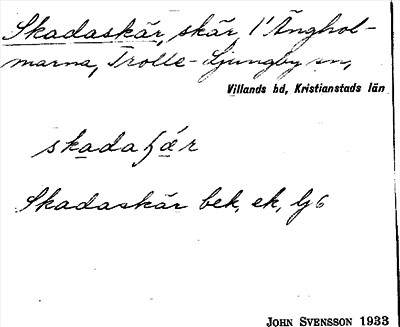 Skadaskär, skär i Änghol-
marna, Trolle-Ljungby sn,
Villands hd, Kristianstads län
Skadaskär bek, ek, lj 6
JOHN SVENSSON 1933